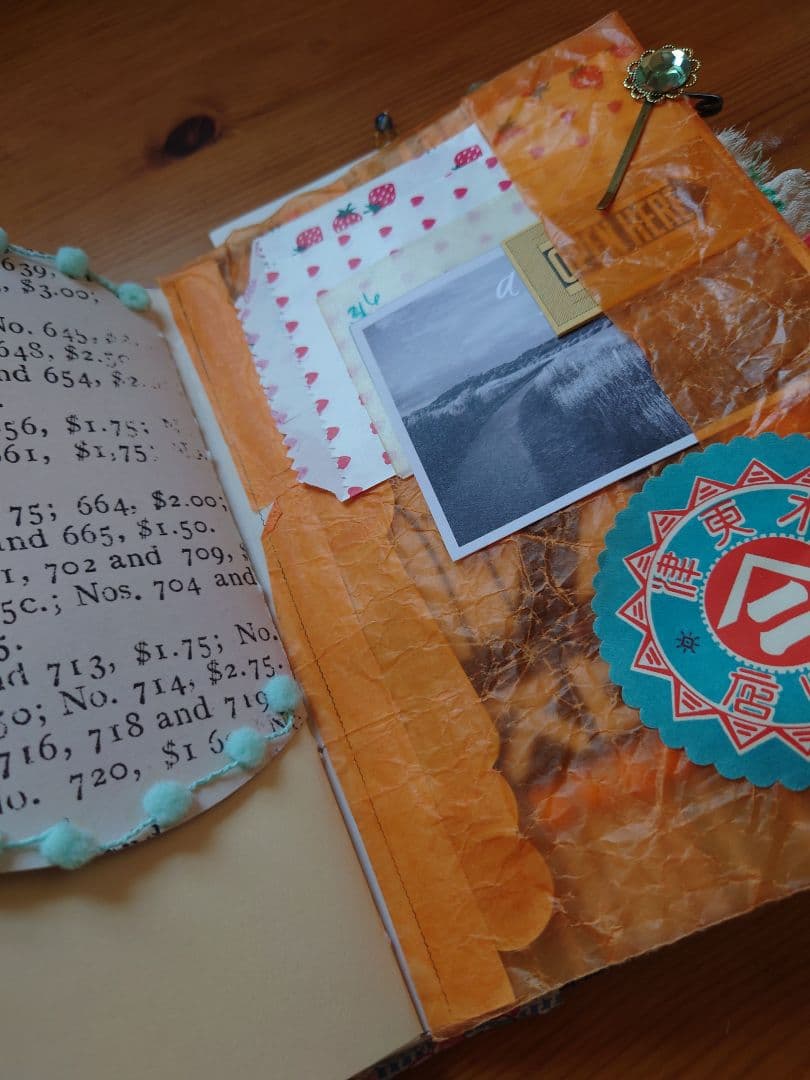 639,
$3.00;
No. 645,
648, $2.50
nd 654, $2.
56, $1.75;
61, $1,75
75; 664, $2.00;
and 665, $1.50.
1, 702 and 709, $
5c.; Nos. 704 and
5.
nd 713, $1.75; No.
50; No. 714, $2.75.
716, 718 and 719
No. 720, $1 6
OPEN HERE
a
津東
店